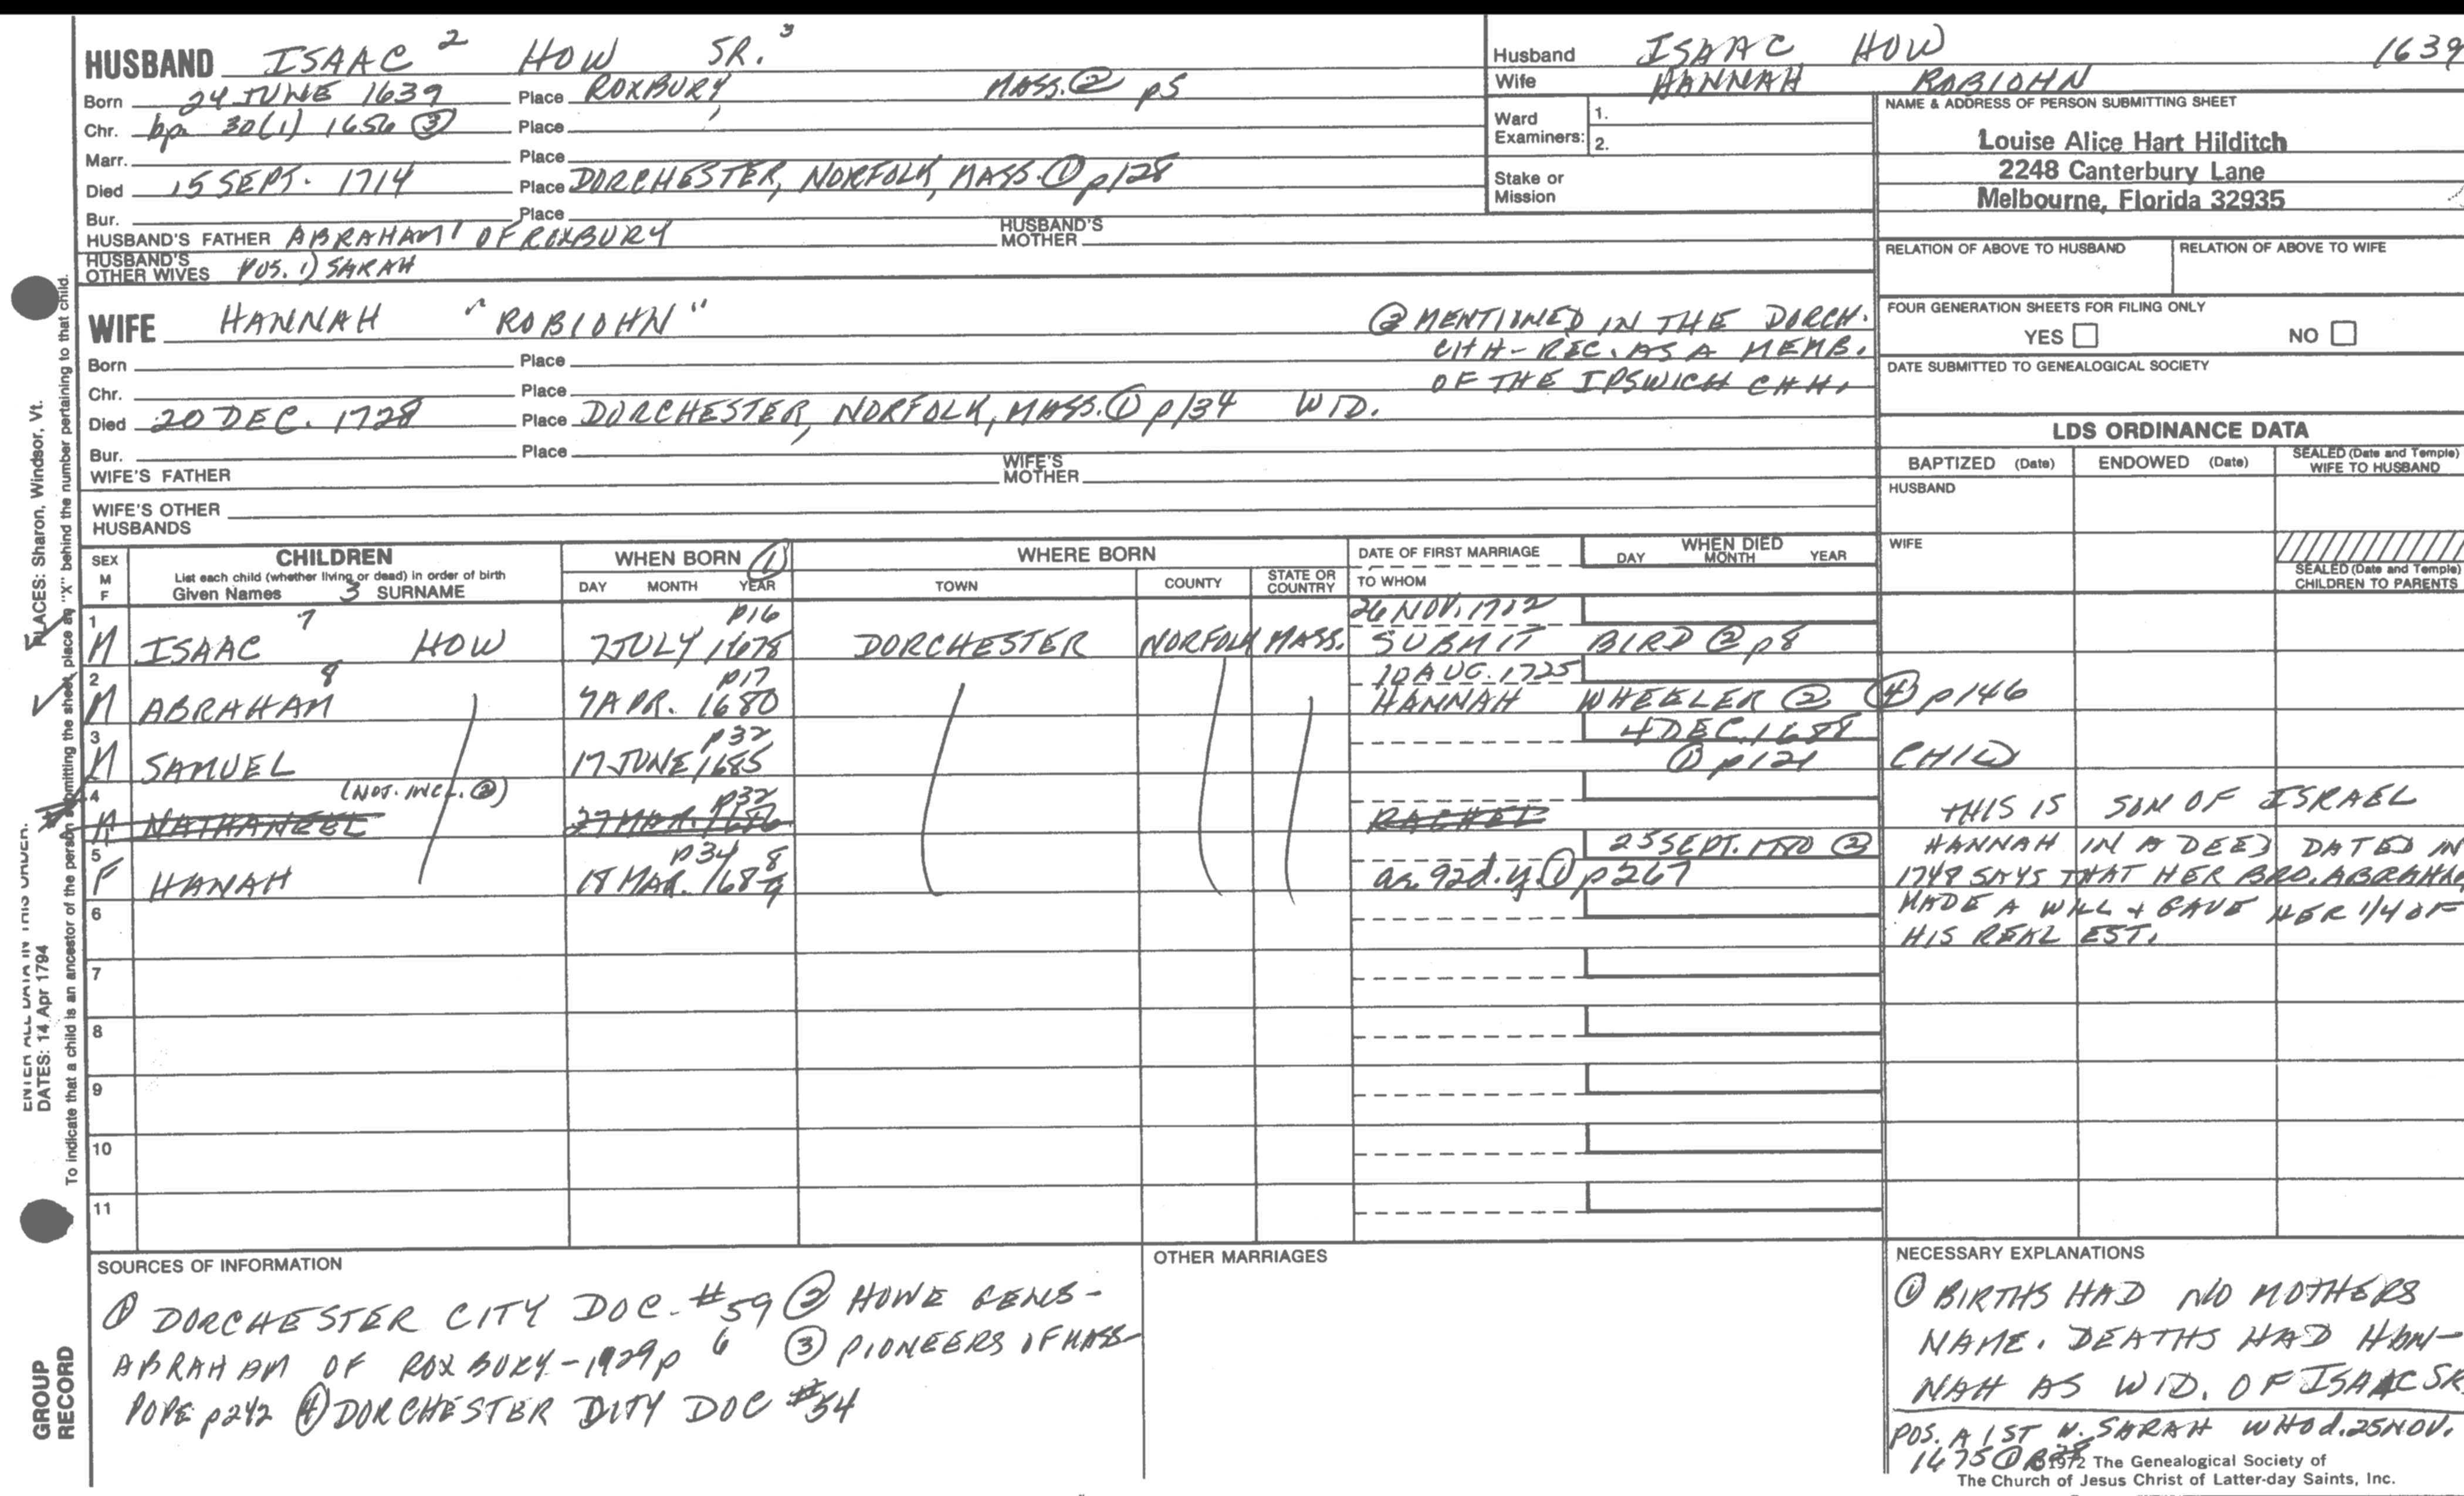 HUSBAND ISAAC 2 HOW SR. 3
Born 24 JUNE 1639 Place ROXBURY, MASS. ② p5
Chr. bp. 30(1) 1656 ③ Place
Marr. Place
Died 15 SEPT. 1714 Place DORCHESTER, NORFOLK, MASS. ① p128
Bur. Place
HUSBAND'S FATHER ABRAHAM 1 OF ROXBURY HUSBAND'S MOTHER
HUSBAND'S OTHER WIVES POS. 1) SARAH
WIFE HANNAH "ROBIOHN"
② MENTIONED IN THE DORCH.
CHH-REC. AS A MEMB.
OF THE IPSWICH CHH.
Born Place
Chr. Place
Died 20 DEC. 1728 Place DORCHESTER, NORFOLK, MASS. ① p134 WID.
Bur. Place
WIFE'S FATHER WIFE'S MOTHER
WIFE'S OTHER HUSBANDS
Husband ISAAC HOW 1639
Wife HANNAH ROBIOHN
Ward Examiners: 1.
2.
Stake or Mission
NAME & ADDRESS OF PERSON SUBMITTING SHEET
Louise Alice Hart Hilditch
2248 Canterbury Lane
Melbourne, Florida 32935
RELATION OF ABOVE TO HUSBAND RELATION OF ABOVE TO WIFE
FOUR GENERATION SHEETS FOR FILING ONLY
YES NO
DATE SUBMITTED TO GENEALOGICAL SOCIETY
LDS ORDINANCE DATA
BAPTIZED (Date) ENDOWED (Date) SEALED (Date and Temple) WIFE TO HUSBAND
HUSBAND
WIFE
SEALED (Date and Temple) CHILDREN TO PARENTS
SEX M F
CHILDREN
List each child (whether living or dead) in order of birth
Given Names 3 SURNAME
WHEN BORN ①
DAY MONTH YEAR
WHERE BORN
TOWN COUNTY STATE OR COUNTRY
DATE OF FIRST MARRIAGE
TO WHOM
WHEN DIED
DAY MONTH YEAR
1 7 p16 26 NOV. 1712
M ISAAC HOW 7 JULY 1678 DORCHESTER NORFOLK MASS. SUBMIT BIRD ② p8
2 8 p17 10 AUG. 1725
M ABRAHAM 7 APR. 1680 HANNAH WHEELER ② ④ p146
3 p32 4 DEC. 1688
M SAMUEL 17 JUNE 1685 ① p121 CHILD
4 (NOT. INCL. ②) p32
M NATHANEEL 27 MAR. 1686 RACHEL THIS IS SON OF ISRAEL
5 p34 25 SEPT. 1780 ②
F HANAH 18 MAR. 168 8/9 ae. 92d. y. ① p267
HANNAH IN A DEED DATED IN
1748 SAYS THAT HER BRO. ABRAHAM
MADE A WILL + GAVE HER 1/4 OF
HIS REAL EST.
6
7
8
9
10
11
SOURCES OF INFORMATION
① DORCHESTER CITY DOC. #59 ② HOWE GENS-
ABRAHAM OF ROXBURY-1929 p 6 ③ PIONEERS OF MASS-
POPE p242 ④ DORCHESTER CITY DOC #54
OTHER MARRIAGES
NECESSARY EXPLANATIONS
① BIRTHS HAD NO MOTHERS
NAME. DEATHS HAD HAN-
NAH AS WID. OF ISAAC SR.
POS. A 1ST W. SARAH WHO d. 25 NOV.
1675 ① p28
1972 The Genealogical Society of
The Church of Jesus Christ of Latter-day Saints, Inc.
PLACES: Sharon, Windsor, Vt.
To indicate that a child is an ancestor of the person submitting the sheet, place an "X" behind the number pertaining to that child.
ENTER ALL DATA IN THIS ORDER:
DATES: 14 Apr 1794
GROUP
RECORD